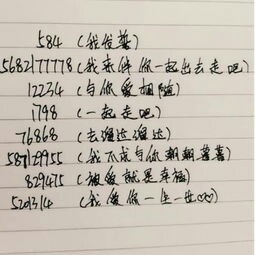 584 (我发誓)
5682177778 (我来伴你一起出去走吧)
12234 (与你爱相随)
1798 (一起走吧)
76868 (去溜达溜达)
587129955 (我不求与你朝朝暮暮)
829475 (被爱就是幸福)
5201314 (我爱你一生一世♡♡)